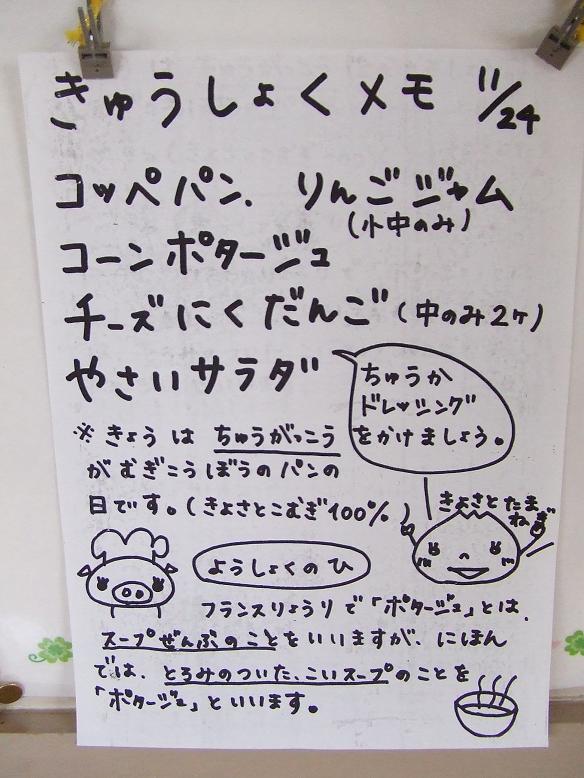 きゅうしょくメモ 11/24
コッペパン. りんごジャム
(小中のみ)
コーンポタージュ
チーズにくだんご(中のみ2ヶ)
やさいサラダ
ちゅうか
ドレッシング
をかけましょう。
※ きょうは ちゅうがっこう
がむぎこうぼうのパンの
日です。(きよさとこむぎ100%)
きよさとたま
ねぎ
ようしょくのひ
フランスりょうりで「ポタージュ」とは、
スープぜんぶのことをいいますが、にほん
では、とろみのついた、こいスープのことを
「ポタージュ」といいます。